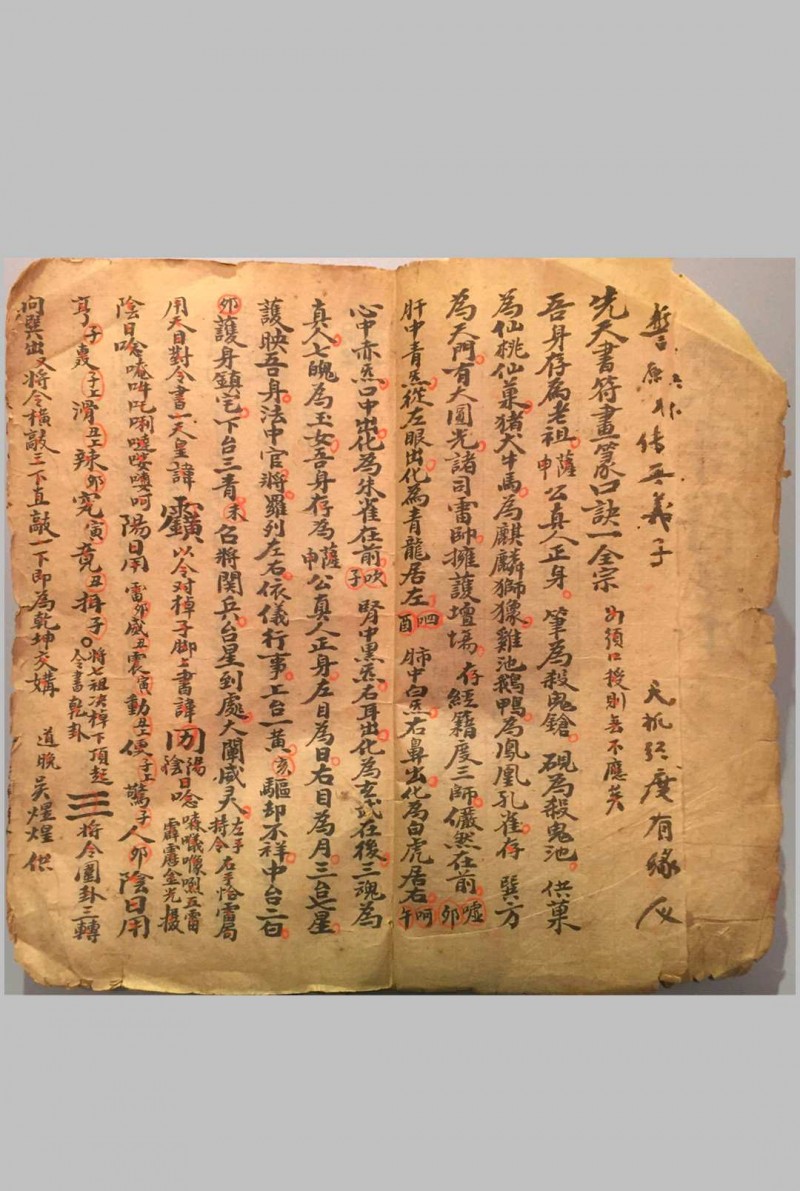 誓愿非人传无義子 天机秘度有缘人
先天書符畫篆口訣一全宗 必須口授則無不應矣
吾身存為老祖薩申公真人正身 筆為殺鬼鎗 硯為殺鬼池 供菓
為仙桃仙菓猪犬牛馬為麒麟獅㺔雞池鵝鴨為鳳凰孔雀存 巽方
為天門有大圓光諸司雷帥擁護壇場 存經籍度三師儼然在前 嘘卯
肝中青炁從左眼出化為青龍居左 呬酉 肺中白炁右鼻出化為白虎居右 呵午
心中赤炁口中出化為朱雀在前 吹子 腎中黑炁右耳出化為玄武在後三魂為
真人七魄為玉女吾身存為薩申公真人正身左目為日右目為月三台七星
護映吾身法中官將羅列左右依儀行事上台一黃亥驅却不祥中台二白
卯護身鎮宅下台三青未召將関兵台星到處大闡威灵 左手持令 右手恰雷局
用天目對令書一天皇諱 以令对棹子脚上書諱 陽日唸 五雷
陰 霹靂金光摄
陰日唸唵吽吒唎 呵陽日用 雷卯威丑震寅動丑上便子上驚子人卯陰日用
亨子轟子上滑丑上辣卯究寅竟丑拜子 将七祖决棹下頂起 令書乾卦 ☰ 将令圈卦三轉
向巽出又将令橫敲三下直敲一下即為乾坤交媾 道晚 吴煌煌供